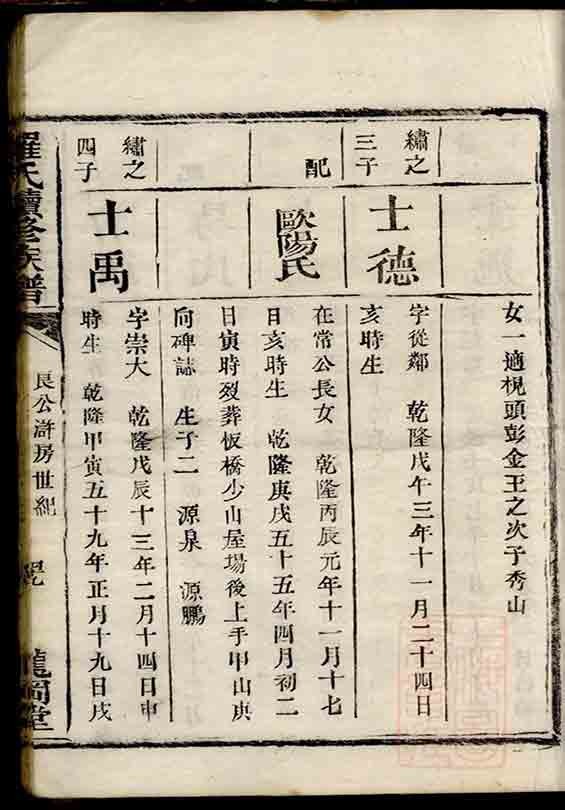 女一適梘頭彭金玉之次子秀山
繡之三子
士德
字從鄰 乾隆戊午三年十一月二十四日
亥時生
配
歐陽氏
在常公長女 乾隆丙辰元年十一月十七
日亥時生 乾隆庚戌五十五年四月初二
日寅時歿葬板橋少山屋場後上手甲山庚
向碑誌 生子二 源泉 源鵬
繡之四子
士禹
字崇大 乾隆戊辰十三年二月十四日申
時生 乾隆甲寅五十九年正月十九日戌
羅氏續修族譜
良公滸房世紀
龍岡堂